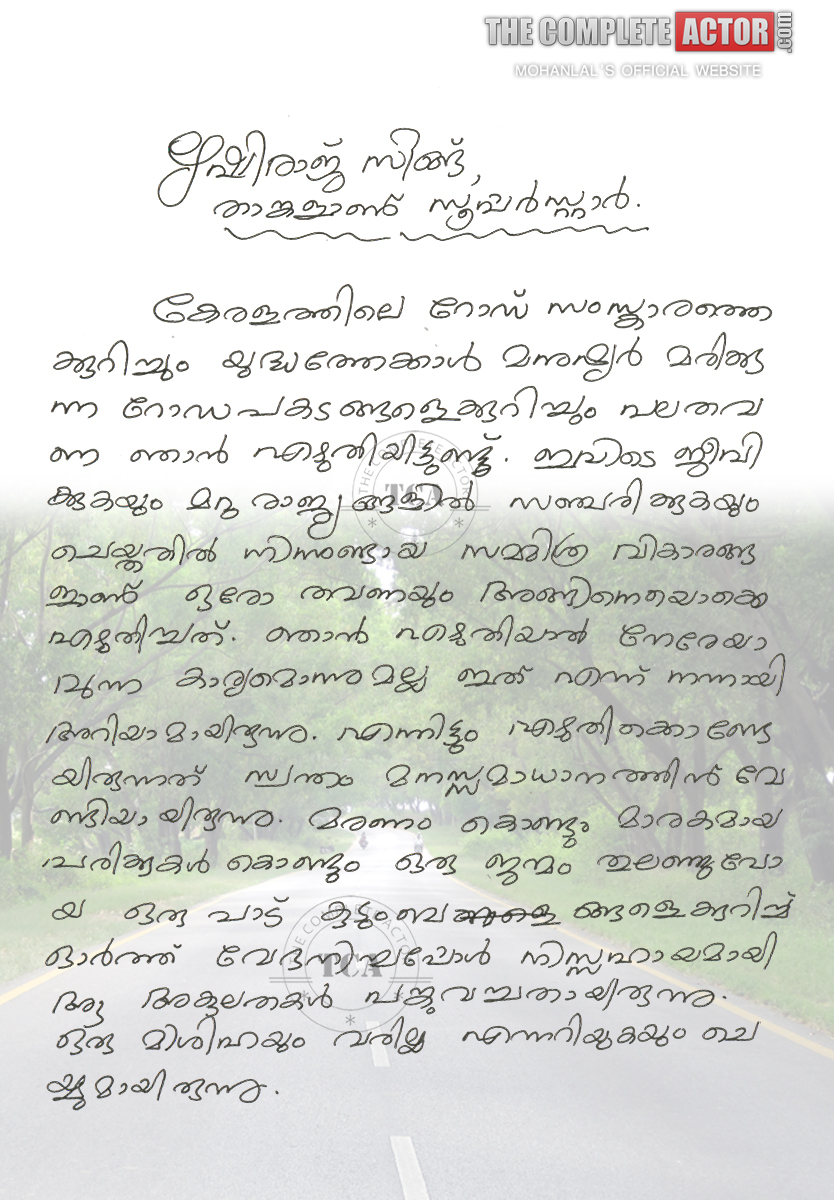 THE COMPLETE ACTOR .com
MOHANLAL'S OFFICIAL WEBSITE
ഋഷിരാജ് സിങ്ങ്,
താങ്കളാണ് സൂപ്പർസ്റ്റാർ.
കേരളത്തിലെ റോഡ് സംസ്കാരത്തെ
ക്കുറിച്ചും യുദ്ധത്തേക്കാൾ മനുഷ്യർ മരിക്കു
ന്ന റോഡപകടങ്ങളെക്കുറിച്ചും പലതവ
ണ ഞാൻ എഴുതിയിട്ടുണ്ട്. ഇവിടെ ജീവി
ക്കുകയും മറ്റു രാജ്യങ്ങളിൽ സഞ്ചരിക്കുകയും
ചെയ്തതിൽ നിന്നുണ്ടായ സമ്മിശ്ര വികാരങ്ങ
ളാണ് ഓരോ തവണയും അങ്ങിനെയൊക്കെ
എഴുതിച്ചത്. ഞാൻ എഴുതിയാൽ നേരേയാ
വുന്ന കാര്യമൊന്നുമല്ല ഇത് എന്ന് നന്നായി
അറിയാമായിരുന്നു. എന്നിട്ടും എഴുതിക്കൊണ്ടേ
യിരുന്നത് സ്വന്തം മനസ്സമാധാനത്തിൻ വേ
ണ്ടിയായിരുന്നു. മരണം കൊണ്ടും മാരകമായ
പരിക്കുകൾ കൊണ്ടും ഒരു ജന്മം തുലഞ്ഞുപോ
യ ഒരു പാട് കുടുംബ ങ്ങളെക്കുറിച്ച്
ഓർത്ത് വേദനിച്ചപ്പോൾ നിസ്സഹായമായി
ആ അകുലതകൾ പങ്കുവച്ചതായിരുന്നു.
ഒരു മിശിഹയും വരില്ല എന്നറിയുകയും ചെ
യ്യുമായിരുന്നു.
THE COMPLETE ACTOR
TCA
THE COMPLETE ACTOR
TCA